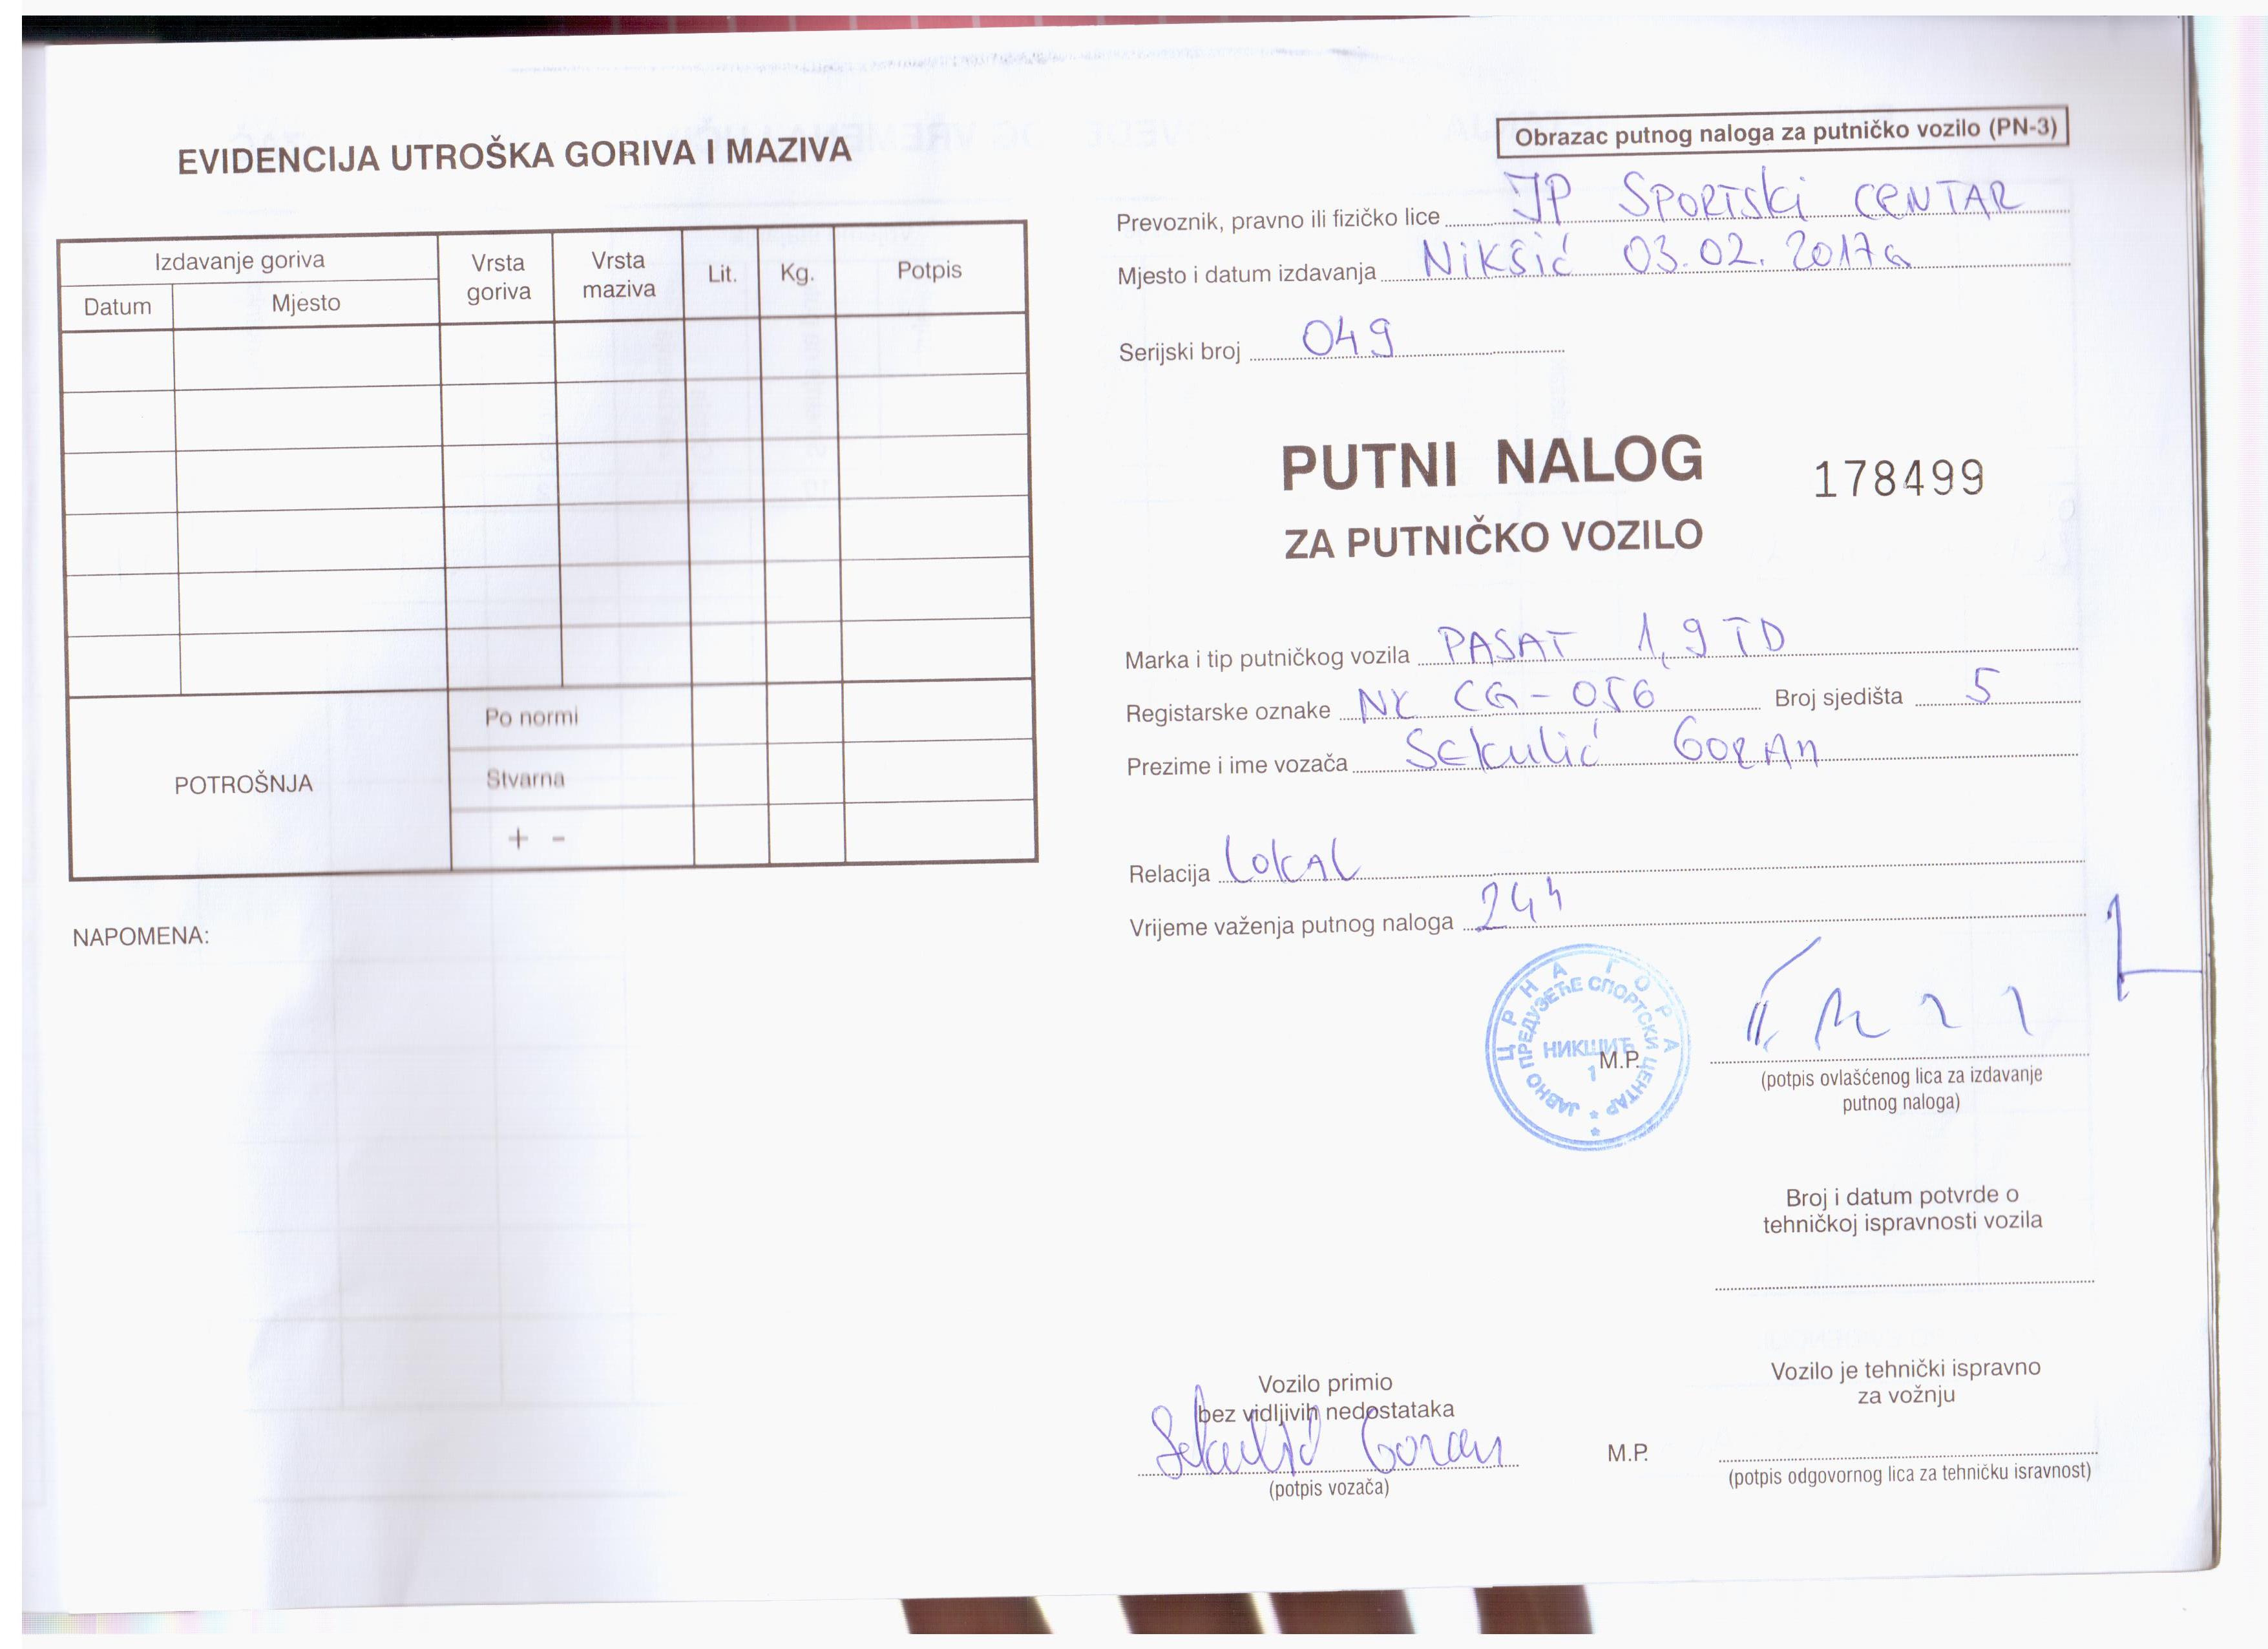 EVIDENCIJA UTROŠKA GORIVA I MAZIVA
Izdavanje goriva
Datum Mjesto
Vrsta goriva
Vrsta maziva
Lit.
Kg.
Potpis
POTROŠNJA
Po normi
Stvarna
+ -
NAPOMENA:
Obrazac putnog naloga za putničko vozilo (PN-3)
Prevoznik, pravno ili fizičko lice JP SPORTSKI CENTAR
Mjesto i datum izdavanja NIKŠIĆ 03.02.2017G
Serijski broj 049
PUTNI NALOG 178499
ZA PUTNIČKO VOZILO
Marka i tip putničkog vozila PASAT 1,9 TD
Registarske oznake NK CG-056 Broj sjedišta 5
Prezime i ime vozača Sekulić GORAN
Relacija LOKAL
Vrijeme važenja putnog naloga 24h
ЦРНА ГОРА
ЈАВНО ПРЕДУЗЕЋЕ СПОРТСКИ ЦЕНТАР
НИКШИЋ
1
M.P.
(potpis ovlašćenog lica za izdavanje
putnog naloga)
Broj i datum potvrde o
tehničkoj ispravnosti vozila
Vozilo primio
bez vidljivih nedostataka
Sekulić Goran
(potpis vozača)
Vozilo je tehnički ispravno
za vožnju
M.P.
(potpis odgovornog lica za tehničku isravnost)